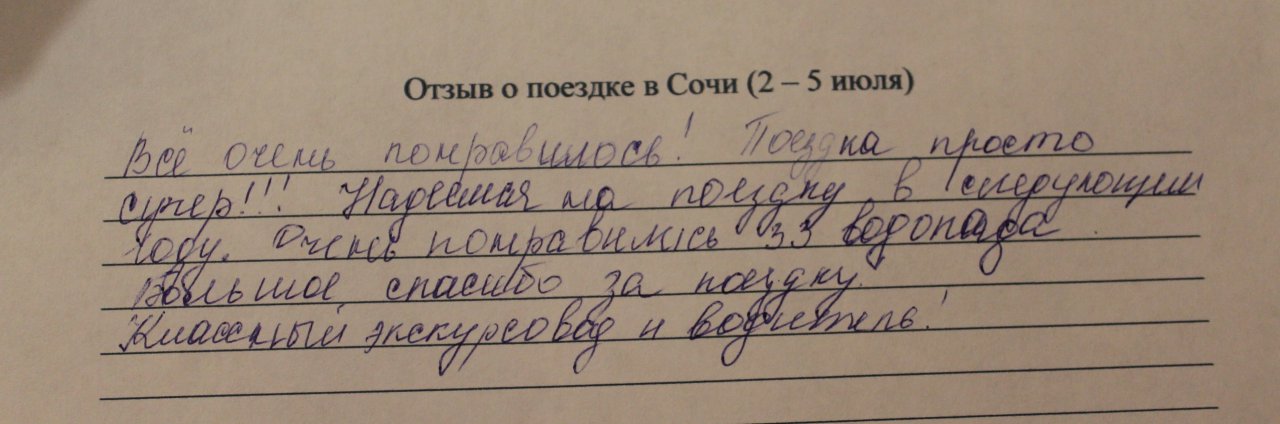 Отзыв о поездке в Сочи (2 – 5 июля)
Всё очень понравилось! Поездка просто
супер!!! Надеемся на поездку в следующем
году. Очень понравились 33 водопада.
Большое спасибо за поездку.
Классный экскурсовод и водитель!